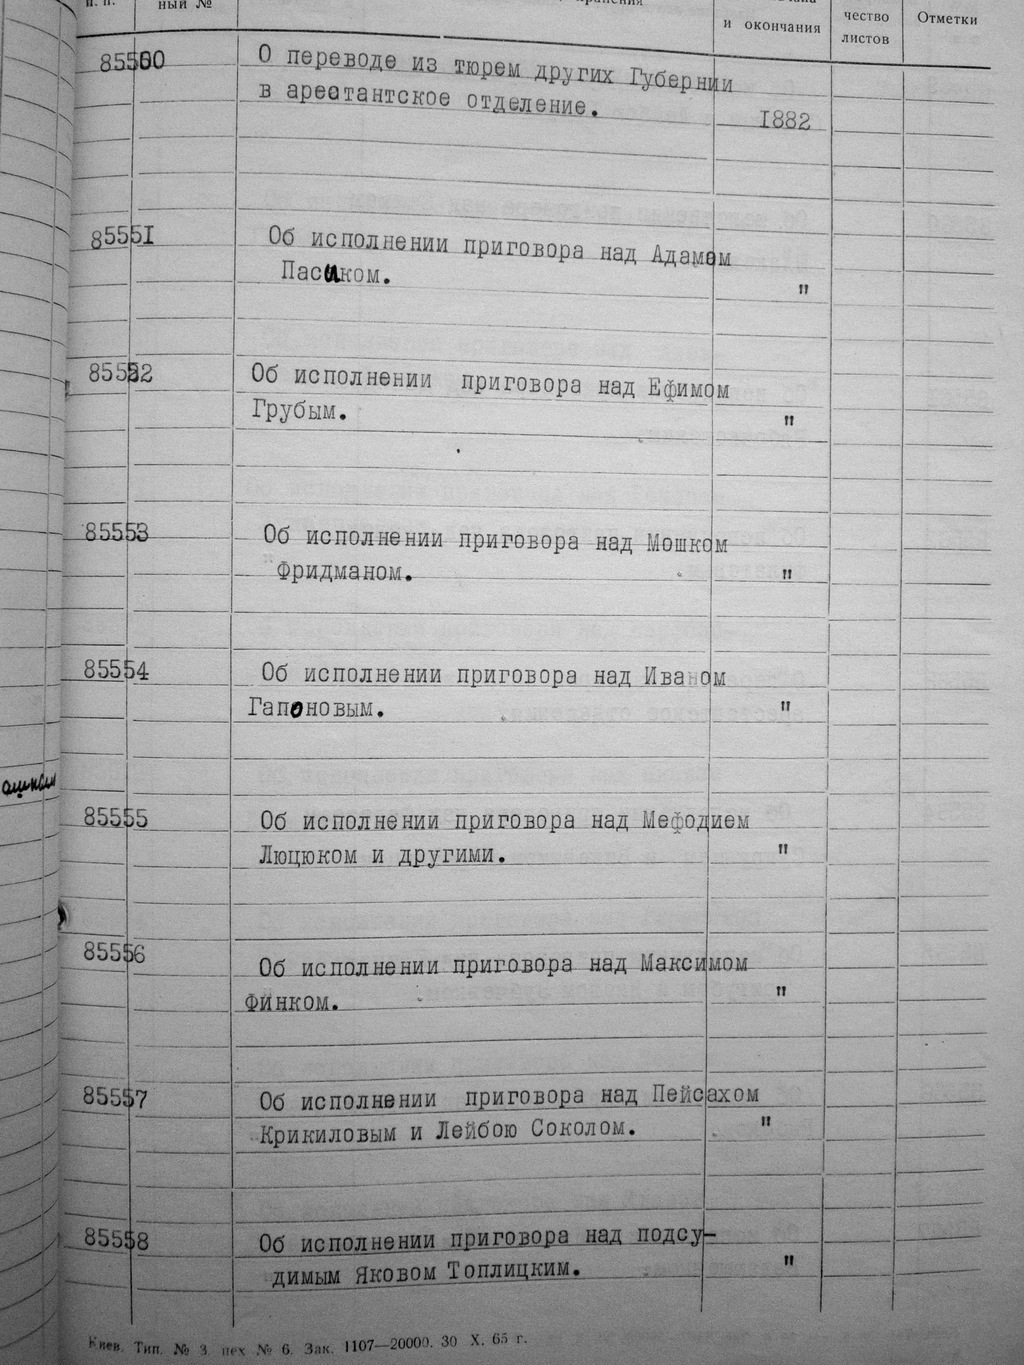 п. п.
ный №
и окончания
чество
листов
Отметки
85550
О переводе из тюрем других Губернии
в арестантское отделение.
1882
85551
Об исполнении приговора над Адамом
Пасиком.
"
85552
Об исполнении приговора над Ефимом
Грубым.
"
85553
Об исполнении приговора над Мошком
Фридманом.
"
85554
Об исполнении приговора над Иваном
Гапоновым.
"
85555
Об исполнении приговора над Мефодием
Люцюком и другими.
"
85556
Об исполнении приговора над Максимом
Финком.
"
85557
Об исполнении приговора над Пейсахом
Крикиловым и Лейбою Соколом.
"
85558
Об исполнении приговора над подсу-
димым Яковом Топлицким.
"
Киев. Тип. № 3 цех № 6. Зак. 1107—20000. 30 X. 65 г.